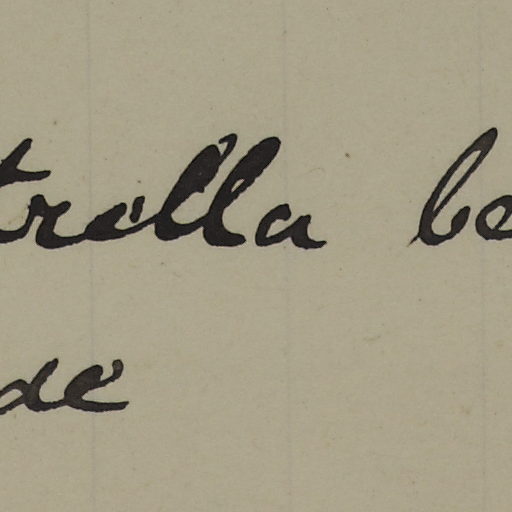 trella be
de